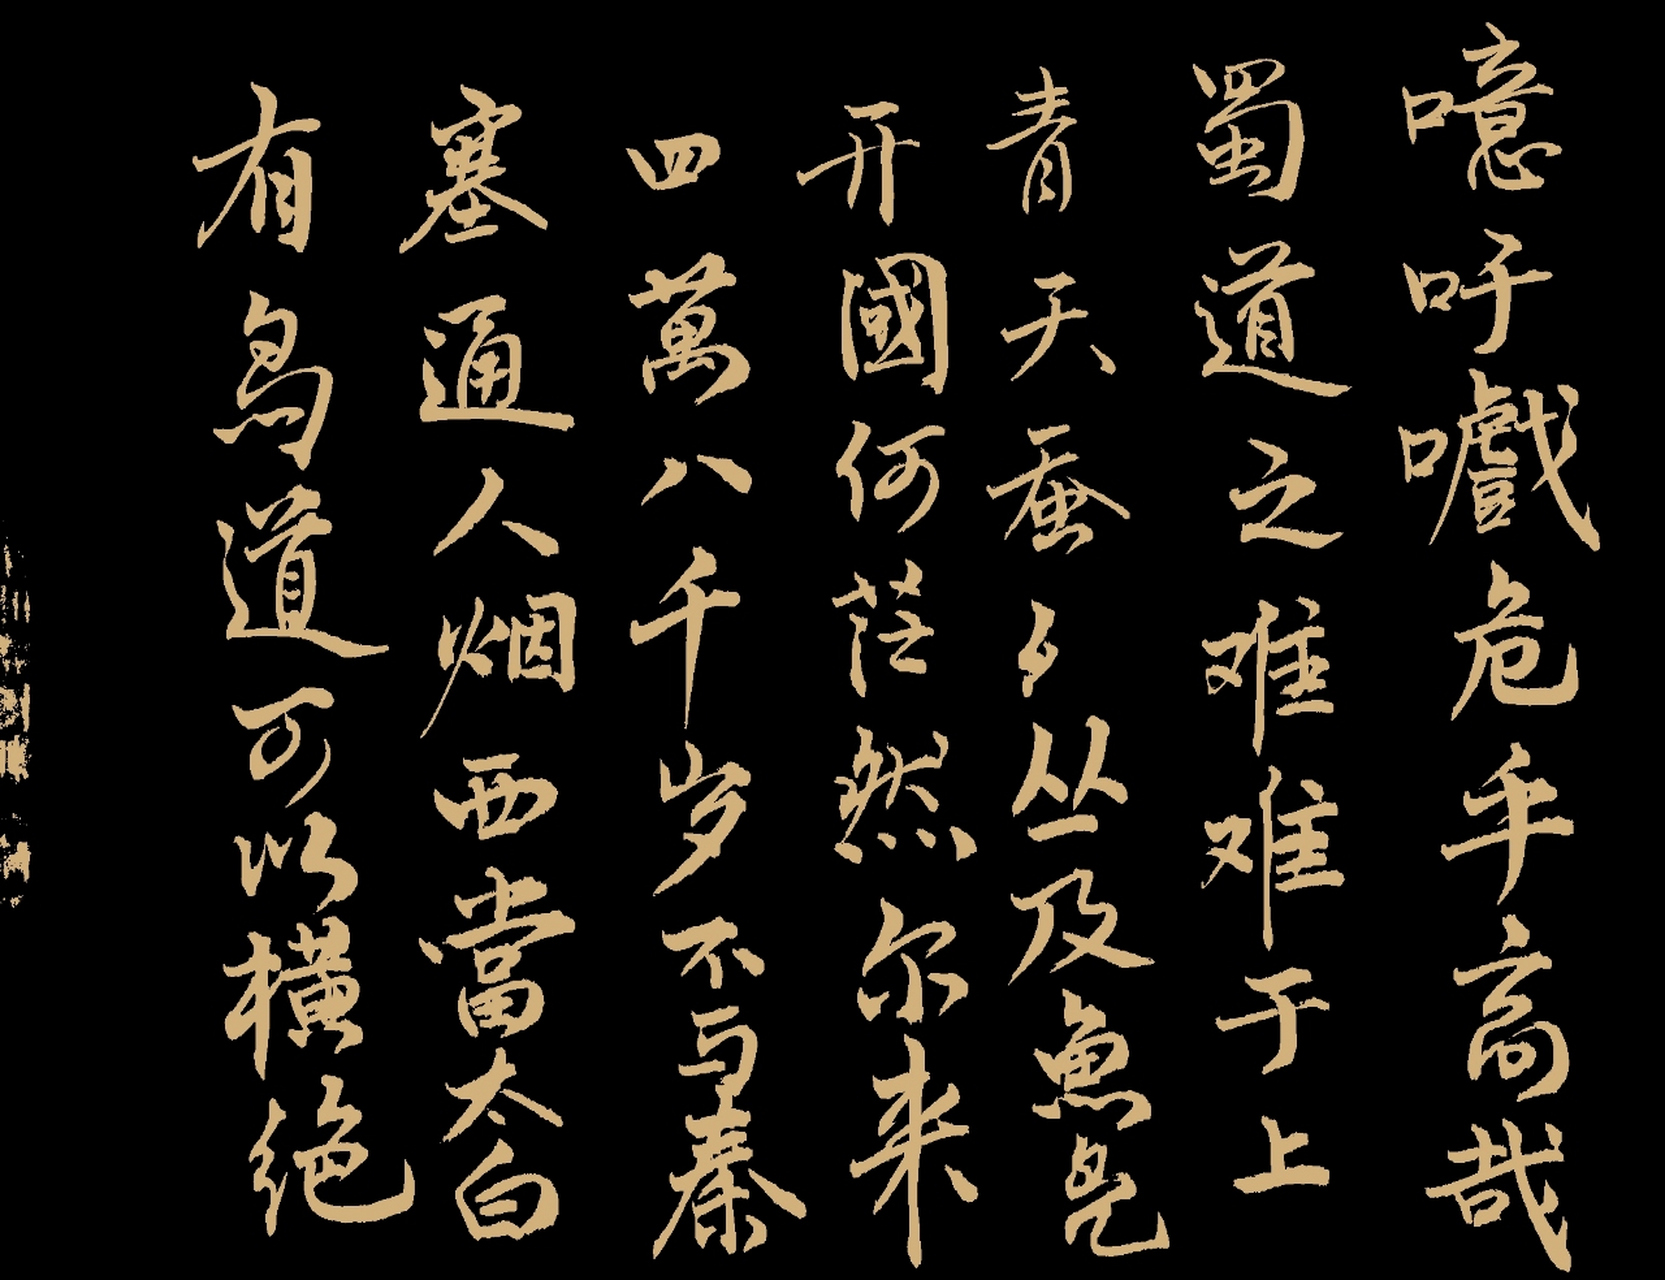 噫吁嚱危乎高哉
蜀道之难难于上
青天蚕丛及魚凫
开國何茫然尔来
四萬八千岁不与秦
塞通人烟西當太白
有鸟道可以横绝